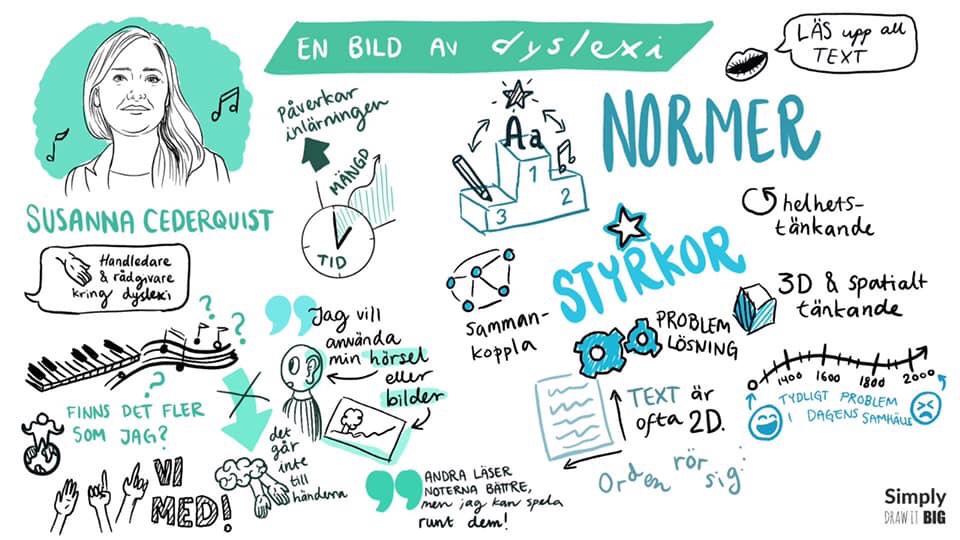 EN BILD AV dyslexi
LÄS upp all
TEXT
SUSANNA CEDERQUIST
Handledare
& rådgivare
kring dyslexi
Påverkar
inlärningen
MÄNGD
TID
Aa
1
2
3
NORMER
STYRKOR
helhets-
tänkande
samman-
koppla
PROBLEM
LÖSNING
3D & spatialt
tänkande
TEXT är
ofta 2D.
Orden rör sig
0
1400
1600
1800
2000
TYDLIGT PROBLEM
I DAGENS SAMHÄLLE
?
?
?
FINNS DET FLER
SOM JAG?
VI
MED!
"Jag vill
använda
min hörsel
eller
bilder
det
går
inte
till
händerna
"ANDRA LÄSER
NOTERNA BÄTTRE,
men jag kan spela
runt dem!
Simply
DRAW IT BIG